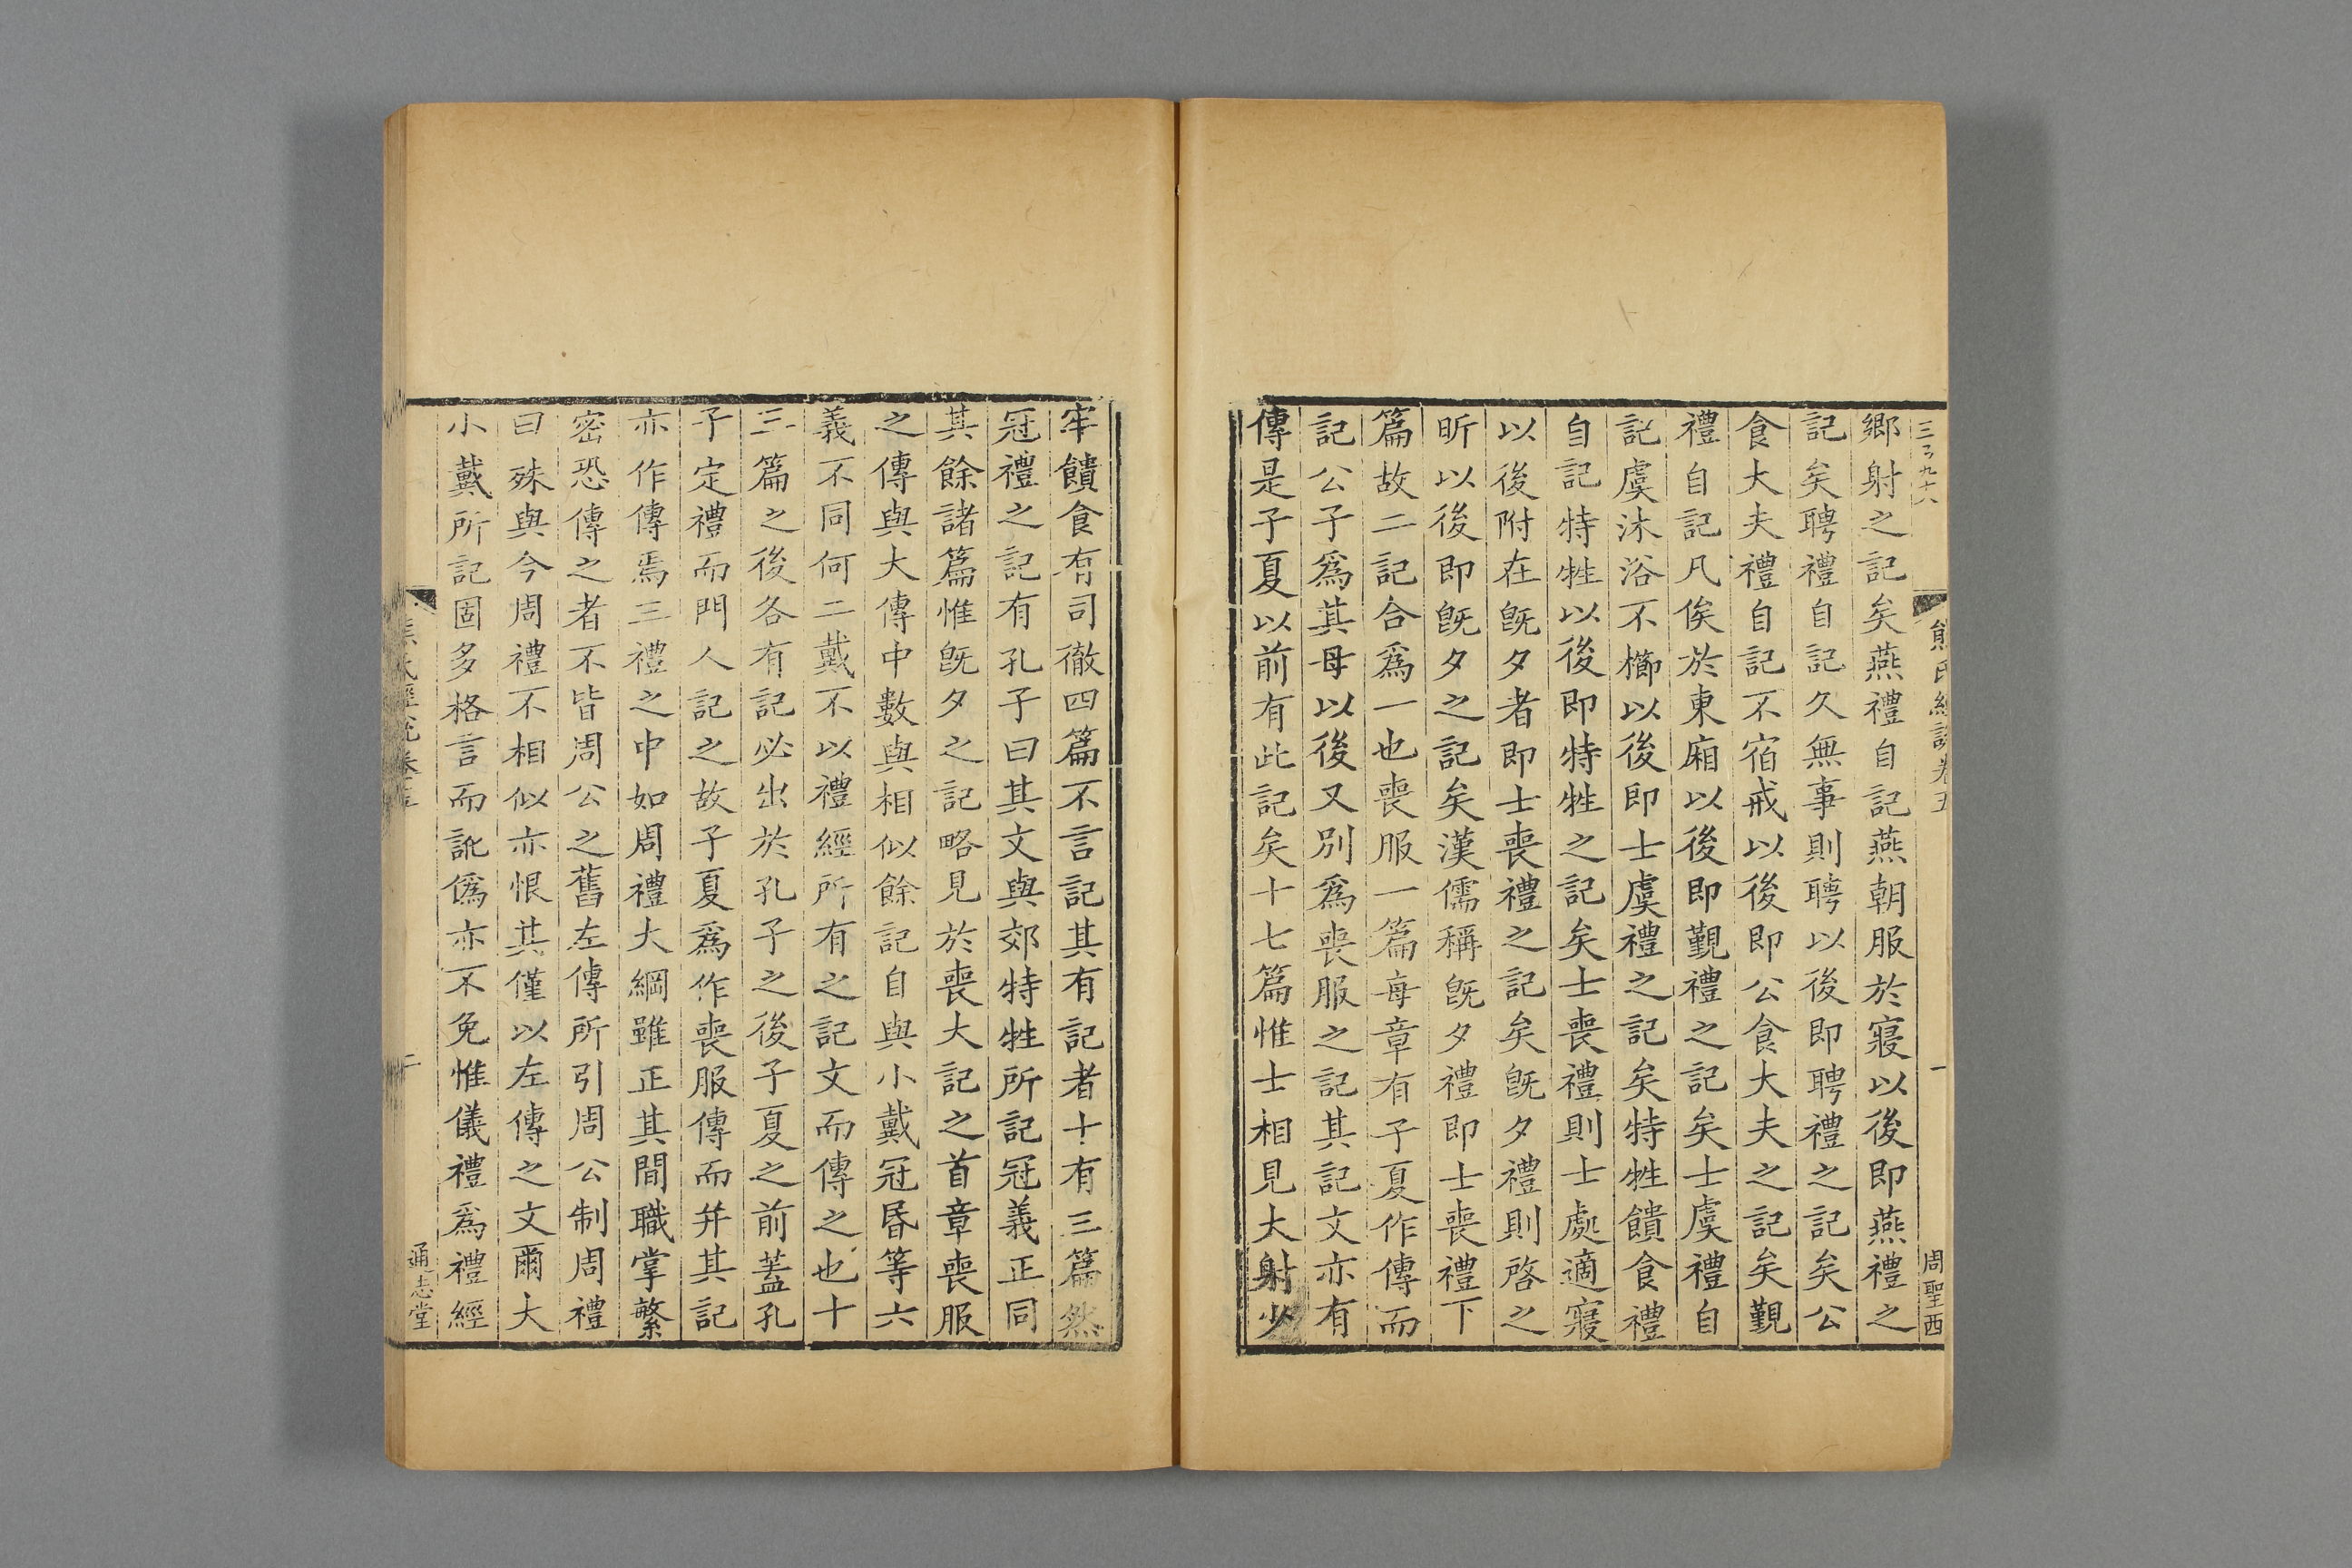 三百九十六
熊氏經說卷五
一
周聖西
鄉射之記矣燕禮自記燕朝服於寢以後即燕禮之
記矣聘禮自記久無事則聘以後即聘禮之記矣公
食大夫禮自記不宿戒以後即公食大夫之記矣覲
禮自記凡俟於東廂以後即覲禮之記矣士虞禮自
記虞沐浴不櫛以後即士虞禮之記矣特牲饋食禮
自記特牲以後即特牲之記矣士喪禮則士處適寢
以後附在旣夕者即士喪禮之記矣旣夕禮則啓之
昕以後即旣夕之記矣漢儒稱旣夕禮即士喪禮下
篇故二記合爲一也喪服一篇每章有子夏作傳而
記公子爲其母以後又別爲喪服之記其記文亦有
傳是子夏以前有此記矣十七篇惟士相見大射少
牢饋食有司徹四篇不言記其有記者十有三篇然
冠禮之記有孔子曰其文與郊特牲所記冠義正同
其餘諸篇惟旣夕之記略見於喪大記之首章喪服
之傳與大傳中數與相似餘記自與小戴冠昏等六
義不同何二戴不以禮經所有之記文而傳之也十
三篇之後各有記必出於孔子之後子夏之前蓋孔
子定禮而門人記之故子夏爲作喪服傳而并其記
亦作傳焉三禮之中如周禮大綱雖正其間職掌繁
密恐傳之者不皆周公之舊左傳所引周公制周禮
曰殊與今周禮不相似亦恨其僅以左傳之文爾大
小戴所記固多格言而訛僞亦不免惟儀禮爲禮經
熊氏經說卷五
二
通志堂